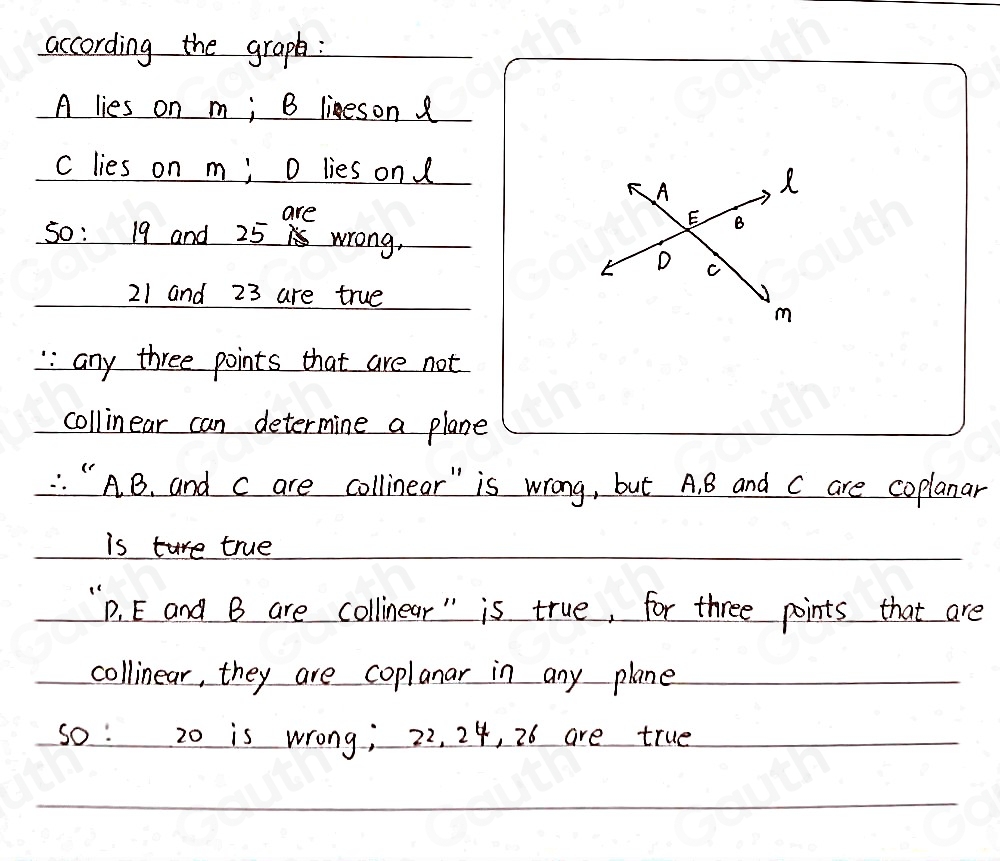 according the graph:
A lies on m; B lies on l
C lies on m; D lies on l
So: 19 and 25 are wrong,
21 and 23 are true
∵ any three points that are not
collinear can determine a plane
∴ "A, B, and C are collinear" is wrong, but A,B and C are coplanar
is ture true
"D, E and B are collinear" is true, for three points that are
collinear, they are coplanar in any plane
SO: 20 is wrong; 22, 24, 26 are true
A
l
E
B
D
C
m
Gauth